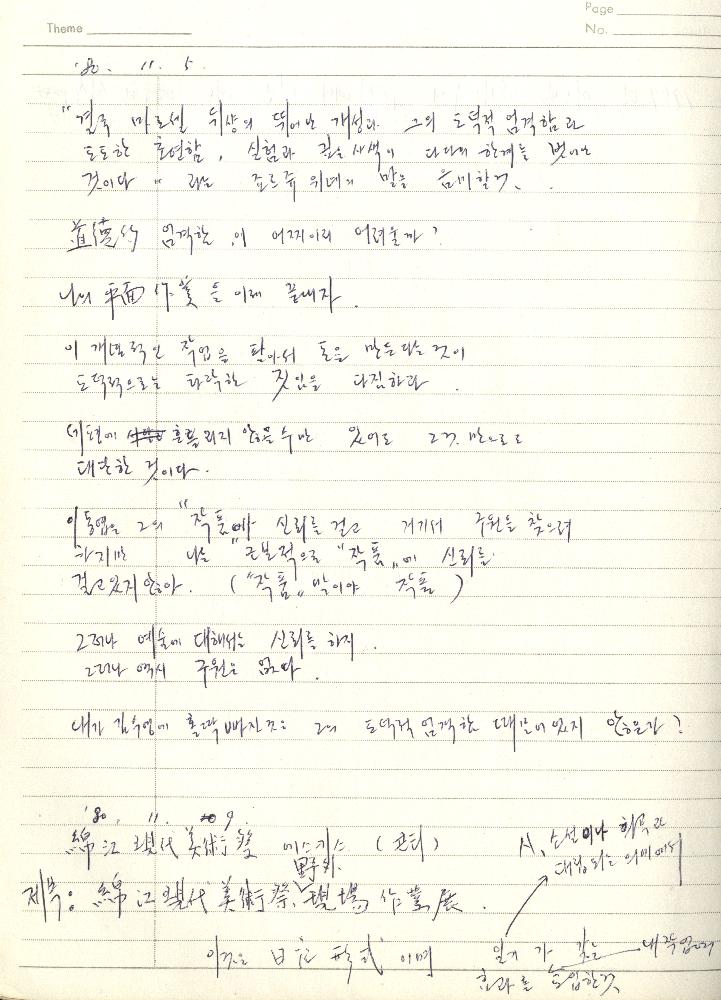 Page
Theme
No.
'80. 11. 5.
"결국 마르셀 뒤샹의 뛰어난 개성과 그의 도덕적 엄격함과
도도한 초연함, 실험과 깊은 사색이 다다의 한계를 벗어난
것이다" 라는 죠르쥬 위네의 말을 음미할것.
道德的 엄격함이 어찌이리 어려울까?
나의 平面作業을 이제 끝내자.
이 개념적인 작업을 팔아서 돈을 만든다는 것이
도덕적으로는 타락한 짓임을 다짐하라.
세도에 흔들리지 않을 수만 있어도 그것만으로도
대단한 것이다.
이동엽은 그의 "작품"에 신뢰를 걸고 거기서 구원을 찾으려
하지만 나는 근본적으로 "작품"에 신뢰를
걸고있지 않아. ("작품" 말이야 작품)
그러나 예술에 대해서는 신뢰를 하지.
그러나 역시 구원은 없다.
내가 김수영에 홀딱 빠진것은 그의 도덕적 엄격함 때문이 있지 않은가?
'80. 11. 9.
綿江現代美術祭 에스키스 (콘티)
野外
제목: 綿江現代美術祭, 現場作業展.
시, 소설이나 희곡과
대칭되는 의미에서
이것은 日記形式이며
일기가 갖는 내작업의
효과를 도입한것